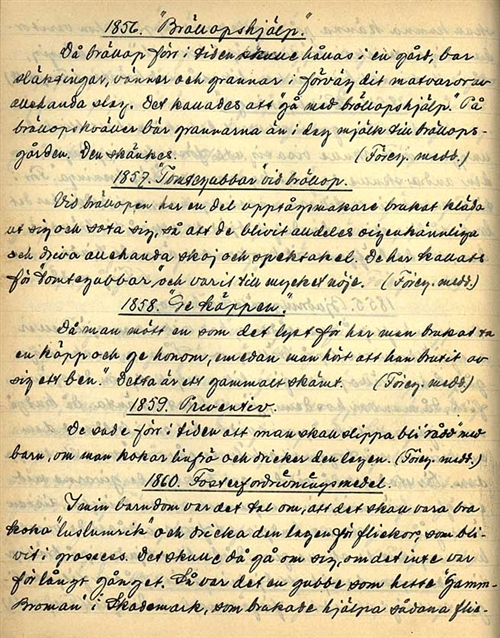 1856. "Bröllopshjälp."
Då bröllop förr i tiden skulle hållas i en gård, bar
släktingar, vänner och grannar i förväg dit matvaror av
allehanda slag. Det kallades att "gå med bröllopshjälp." På
bröllopskvällen bär grannarna än i dag mjölk till bröllops-
gården. Den skänkes. (Föreg. medd.)
1857. "Tomtegubbar" vid bröllop.
Vid bröllopen har en del upptågsmakare brukat kläda
ut sig och sota sig, så att de blivit alldeles oigenkännliga
och driva allehanda skoj och spektakel. De har kallats
för "tomtegubbar" och varit till mycket nöje. (Föreg. medd.)
1858. "Ge käppen."
Då man mött en som det lyst för har man brukat ta
en käpp och ge honom, "emedan man hört att han brutit av
sig ett ben." Detta är ett gammalt skämt. (Föreg. medd.)
1859. Preventiv.
De sade förr i tiden att man skall slippa bli "rådd" med
barn, om man kokar linfrö och dricker den lagen. (Föreg. medd.)
1860. Fosterfördrivningsmedel.
I min barndom var det tal om, att det skall vara bra
koka "luslumrik" och dricka den lagen för flickor, som bli-
vit i grosess. Det skulle då gå om sig, om det inte var
för långt gånget. Så var det en gubbe som hette "Gamm-
Broman" i Skademark, som brukade hjälpa sådana flic-